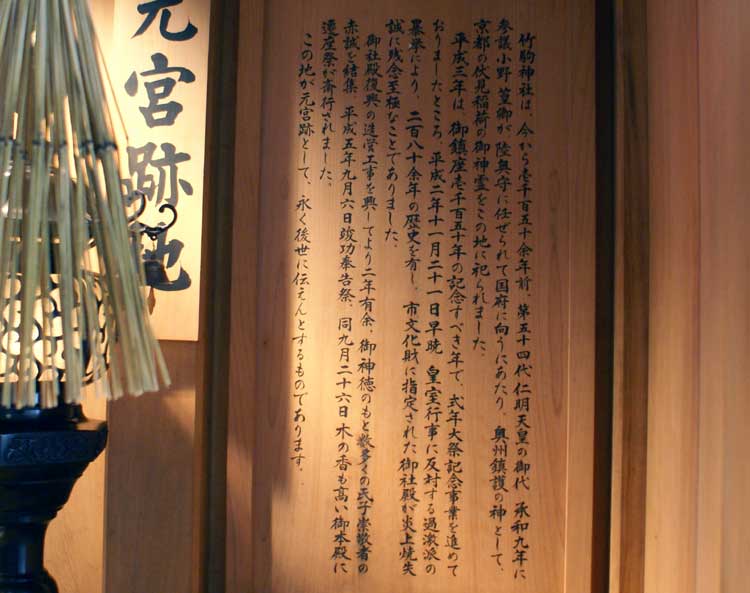 竹駒神社は、今から壱千百五十余年前、第五十四代仁明天皇の御代 承和九年に
参議小野篁卿が陸奥守に任ぜられて国府に向うにあたり、奥州鎮護の神として、
京都の伏見稲荷の御神霊をこの地に祀られました。
平成三年は、御鎮座壱千百五十年の記念すべき年で、式年大祭記念事業を進めて
おりましたところ、平成二年十一月二十一日早暁 皇室行事に反対する過激派の
暴挙により、二百八十余年の歴史を有し、市文化財に指定された御社殿が炎上焼失
誠に残念至極なことでありました。
御社殿復興の造営工事を興してより二年有余、御神徳のもと数多くの氏子崇敬者の
赤誠を結集、平成五年九月六日竣功奉告祭、同九月二十六日木の香も高い御本殿に
遷座祭が斎行されました。
この地が元宮跡として、永く後世に伝えんとするものであります。
元宮跡地